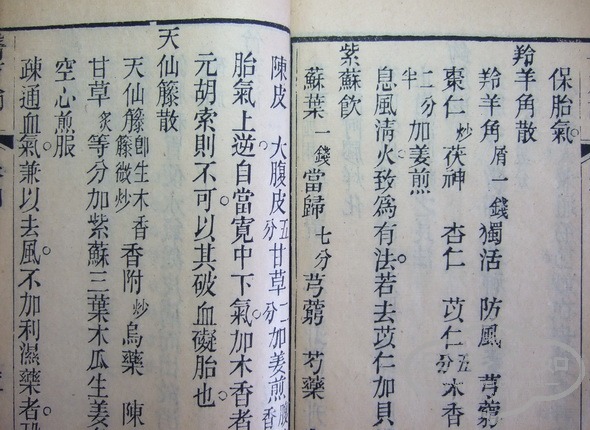 保胎氣。
羚羊角散
羚羊角屑一錢獨活 防風 芎藭
棗仁炒茯神 杏仁 苡仁五分木香
二分半加姜煎
息風清火致為有法。若去苡仁加貝
紫蘇飲
蘇葉一錢當歸七分芎藭 芍藥
陳皮 大腹皮五分甘草二分加姜煎腹
胎氣上逆自當寬中下氣。加木香者
元胡索則不可以其破血礙胎也。
天仙籐散
天仙籐卽生木香籐微炒香附炒烏藥 陳
甘草炙等分加紫蘇三葉木瓜生姜
空心煎服
疎通血氣。兼以去風。不加利濕藥者。